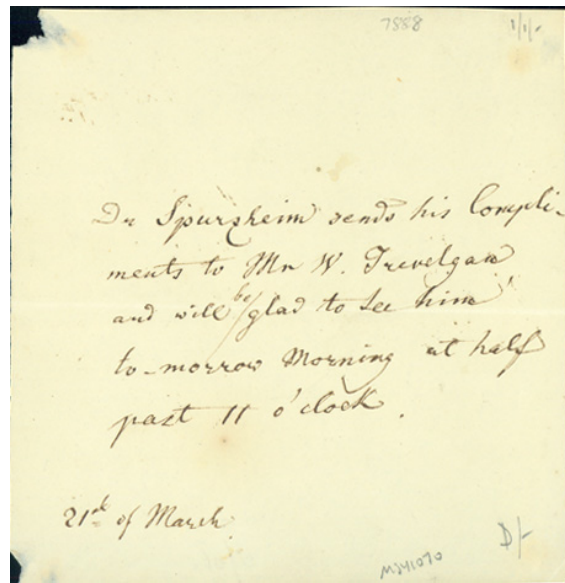 7888 1/1/-
Dr Spurzheim sends his Compli-
ments to Mr W. Trevelgan
and will be glad to see him
to-morrow Morning at half
past 11 o'clock.
21st of March.
D/-